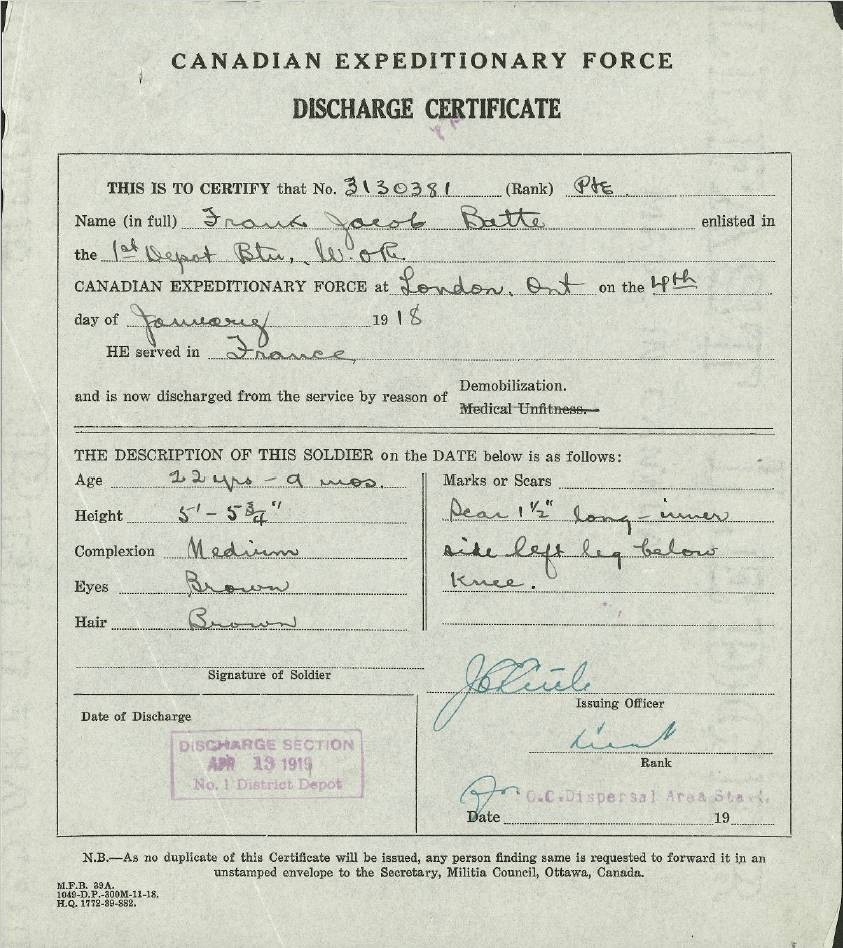 CANADIAN EXPEDITIONARY FORCE
DISCHARGE CERTIFICATE
THIS IS TO CERTIFY that No. 3130381 (Rank) Pte.
Name (in full) Frank Jacob Batte enlisted in
the 1st Depot Btn, W.O.R.
CANADIAN EXPEDITIONARY FORCE at London, Ont on the 4th
day of January 1918
HE served in France
and is now discharged from the service by reason of Demobilization.
Medical Unfitness.
THE DESCRIPTION OF THIS SOLDIER on the DATE below is as follows:
Age 22 yrs - 9 mos.
Height 5' - 5 3/4"
Complexion Medium
Eyes Brown
Hair Brown
Marks or Scars
Scar 1 1/2" long - inner
side left leg below
knee.
Signature of Soldier
Issuing Officer
Lieut
Rank
Date of Discharge
DISCHARGE SECTION
APR 13 1919
No. 1 District Depot
For O.C. Dispersal Area Sta.
Date 19
N.B.—As no duplicate of this Certificate will be issued, any person finding same is requested to forward it in an
unstamped envelope to the Secretary, Militia Council, Ottawa, Canada.
M.F.B. 39A.
1049-D.P.-300M-11-18.
H.Q. 1772-39-882.